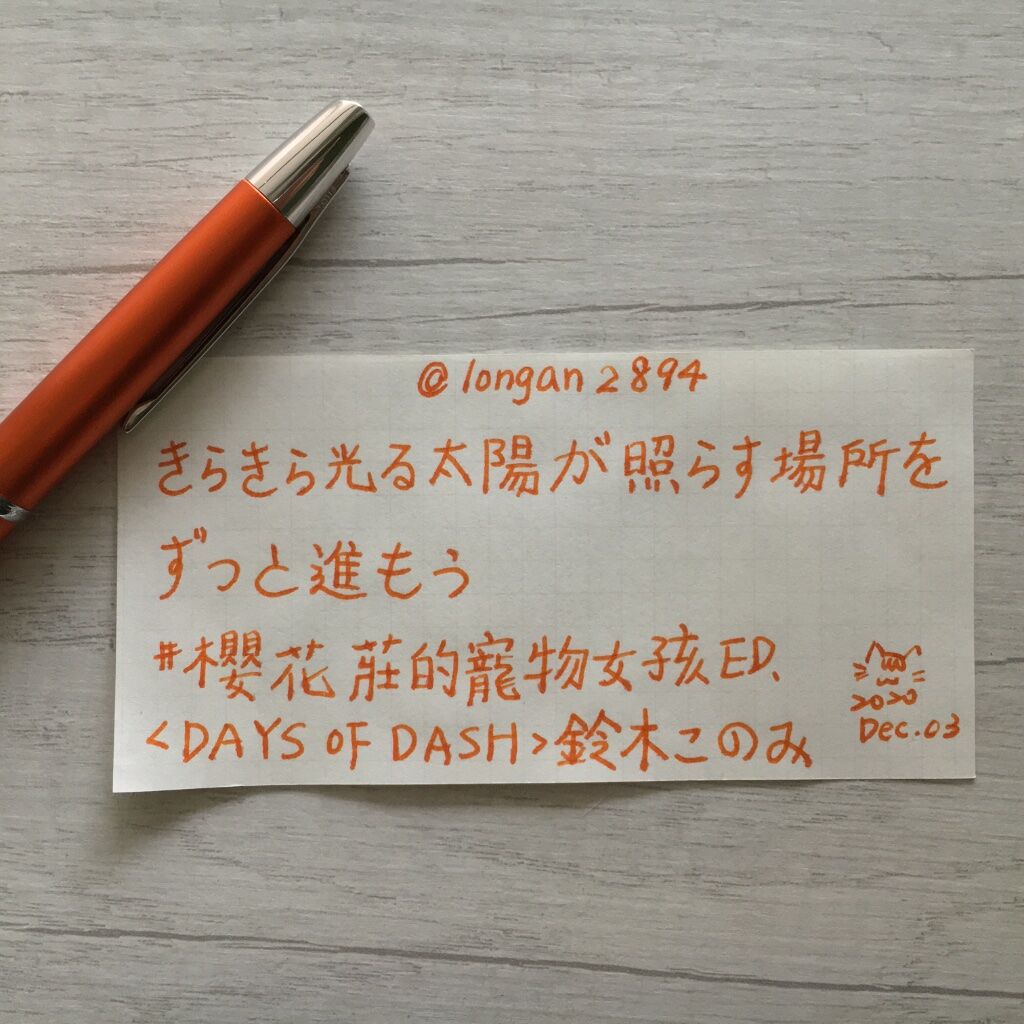 @longan2894
きらきら光る太陽が照らす場所を
ずっと進もう
#櫻花莊的寵物女孩ED、
<DAYS OF DASH>鈴木このみ
2020
Dec.03